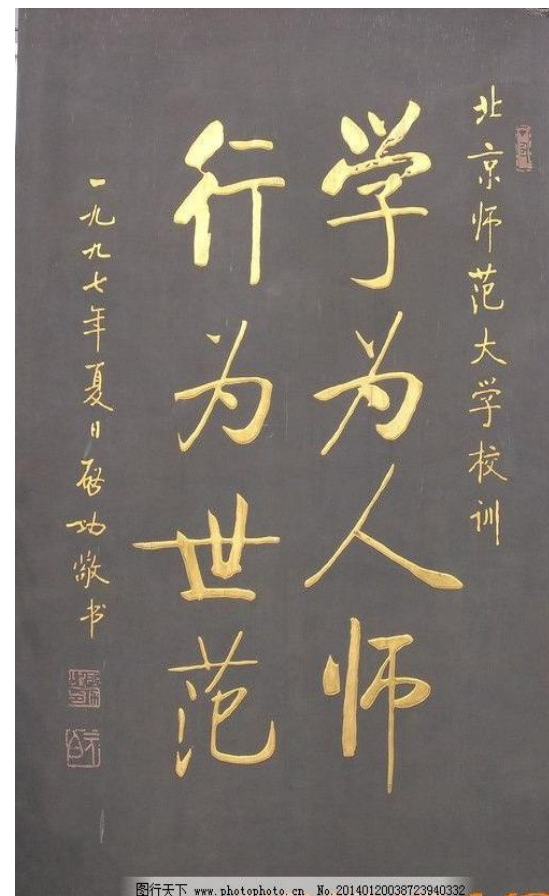 北京师范大学校训
学为人师
行为世范
一九九七年夏日启功敬书
图行天下 www.photophoto.cn No.20140120038723940332